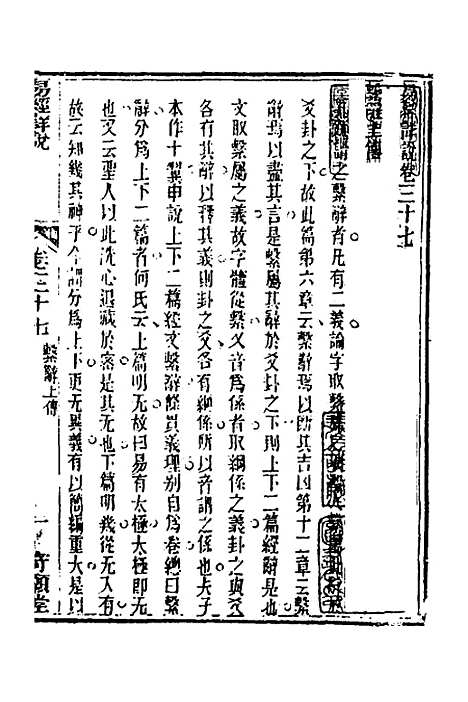 易經詳說卷三十七
繫辭上傳
謂之繫辭者凡有二義論字取繫
爻卦之下故此篇第六章云繫辭焉以斷其吉凶第十二章云繫
辭焉以盡其言是繫屬其辭於爻卦之下則上下二篇經辭是也
文取繫屬之義故字體從繫又音爲係者取綱係之義卦之與爻
各有其辭以釋其義則卦之爻各有綱係所以音謂之係也夫子
本作十翼申說上下二篇經文繫辭條貫義理別自爲卷總曰繫
辭分爲上下二篇者何氏云上篇明无故曰易有太極太極即无
也又云聖人以此洗心退藏於密是其无也下篇明幾從无入有
故云知幾其神乎今謂分爲上下更无異義有以簡編重大是以
易經詳說
卷三十七 繫辭上傳
一
寄願堂